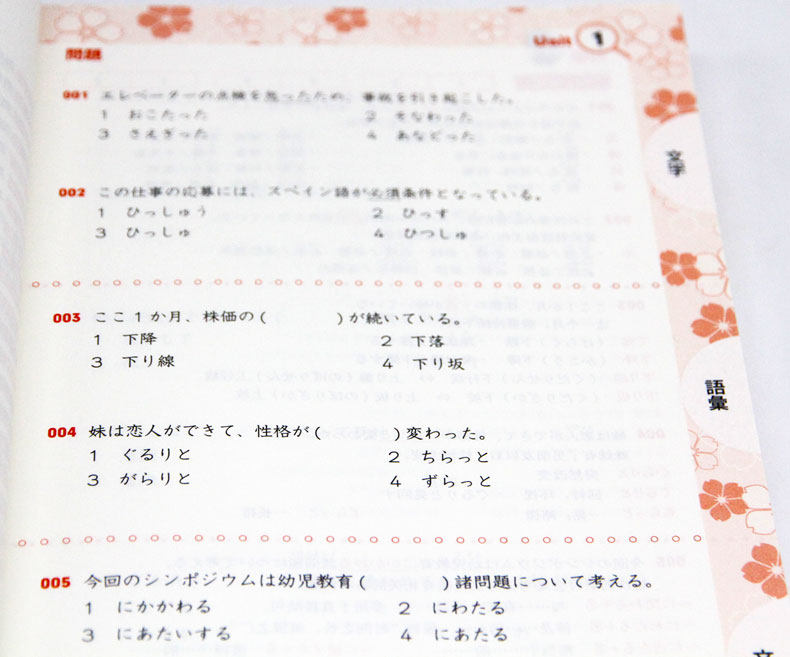 Unit 1
問題
001 エレベーターの点検を怠ったため、事故を引き起こした。
1 おこたった 2 そなわった
3 さえぎった 4 あなどった
文字
002 この仕事の応募には、スペイン語が必須条件となっている。
1 ひっしゅう 2 ひっす
3 ひっしゅ 4 ひつしゅ
003 ここ1か月、株価の( )が続いている。
1 下降 2 下落
3 下り線 4 下り坂
語彙
004 妹は恋人ができて、性格が( )変わった。
1 ぐるりと 2 ちらっと
3 がらりと 4 ずらっと
005 今回のシンポジウムは幼児教育( )諸問題について考える。
1 にかかわる 2 にわたる
3 にあたいする 4 にあたる